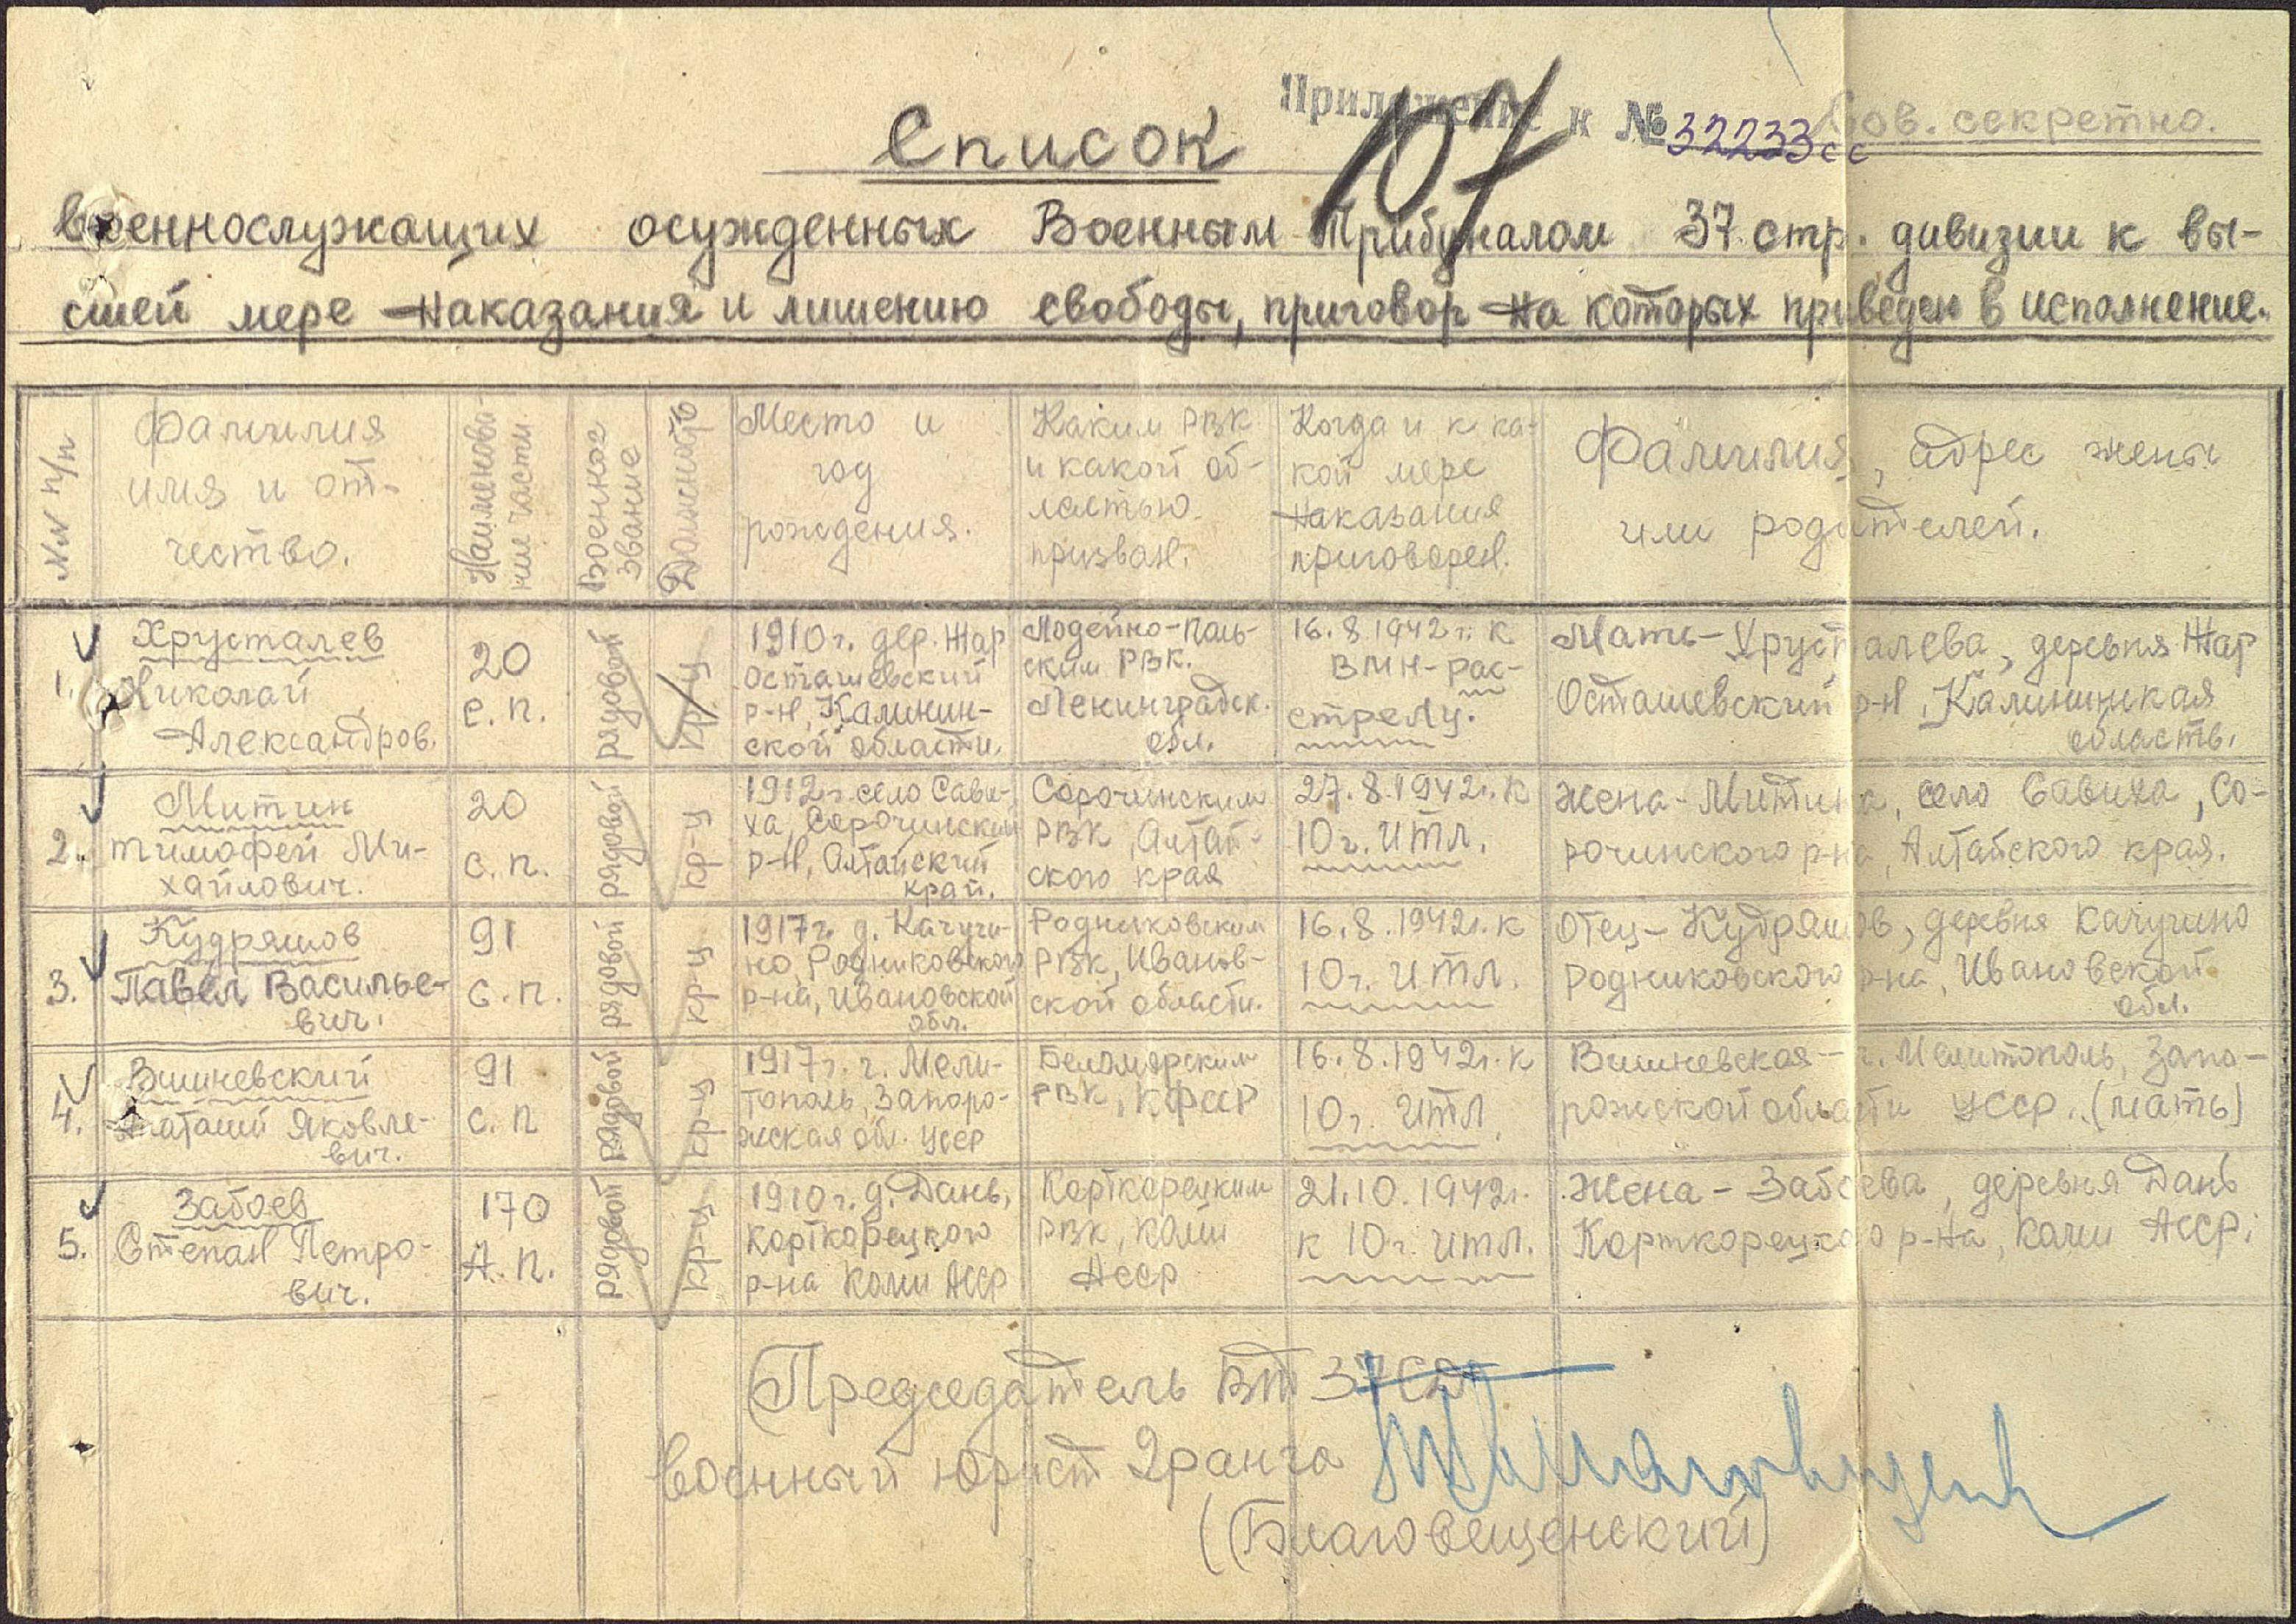 Приложение к № 32233сс
Сов. секретно.
107
Список
военнослужащих осужденных Военным Трибуналом 37 стр. дивизии к вы-
сшей мере наказания и лишению свободы, приговор на которых приведен в исполнение.
№№ п/п
Фамилия
имя и от-
чество.
Наименова-
ние части
Военное
звание
Должность
Место и
год
рождения.
Каким РВК
и какой об-
ластью
призван.
Когда и к ка-
кой мере
наказания
приговорен.
Фамилия, адрес жены
или родителей.
1.
Хрусталев
Николай
Александров.
20
с.п.
рядовой
кр-ц
1910г. дер. Жар
Осташевский
р-н, Калинин-
ской области.
Лодейно-поль-
ским РВК.
Ленинградск.
обл.
16.8.1942г. к
ВМН-рас-
стрелу.
Мать-Хрусталева, деревня Жар
Осташевский р-н, Калининкая
область.
2.
Митин
Тимофей Ми-
хайлович.
20
с.п.
рядовой
кр-ц
1912г. село Сави-
ха, Сорочинский
р-н, Алтайский
край.
Сорочинским
РВК, Алтай-
ского края
27.8.1942г. к
10г. ИТЛ.
Жена-Митина, село Савиха, Со-
рочинского р-на, Алтайского края.
3.
Кудряшов
Павел Василье-
вич.
91
с.п.
рядовой
кр-ц
1917г. д. Качуги-
но, Родниковского
р-на, Ивановской
обл.
Родниковским
РВК, Иванов-
ской области.
16.8.1942г. к
10г. ИТЛ.
Отец-Кудряшов, деревня Качугино
Родниковского р-на, Ивановской
обл.
4.
Вишневский
Анатолий Яковле-
вич.
91
с.п
рядовой
кр-ц
1917г. г. Мели-
тополь, Запоро-
жская обл. УССР
Беломорским
РВК, КФССР
16.8.1942г. к
10г. ИТЛ.
Вишневская-г. Мелитополь, Запо-
рожской области УССР. (мать)
5.
Забоев
Степан Петро-
вич.
170
А.п.
рядовой
кр-ц
1910г. д. Дань,
Корткорецкого
р-на Коми АССР
Корткорецким
РВК, Коми
АССР
21.10.1942г.
к 10г. ИТЛ.
Жена-Забоева, деревня Дань
Корткорецкого р-на, Коми АССР.
Председатель ВТ 37 СД
военный юрист 2 ранга
(Благовещенский)